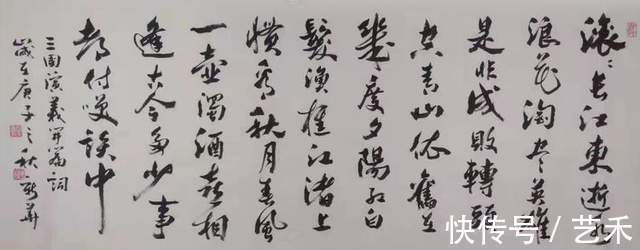 滚滚長江東逝水
浪花淘尽英雄
是非成敗轉頭
空青山依舊在
幾度夕陽紅白
髮漁樵江渚上
慣看秋月春風
一壺濁酒喜相
逢古今多少事
都付笑談中
三國演義開篇詞
歲在庚子之秋
快传号 / 艺禾